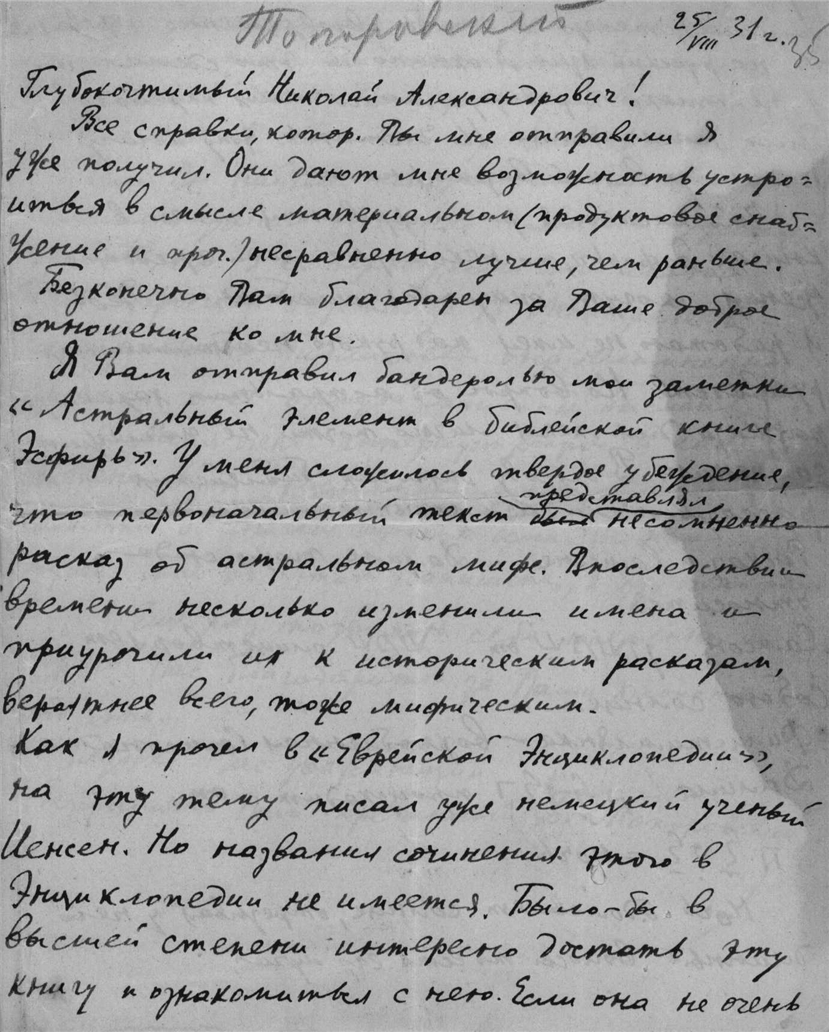 Топоровский
25/VIII 31 г. 35
Глубокочтимый Николай Александрович!
Все справки, котор. Вы мне отправили я
уже получил. Они дают мне возможность устро=
иться в смысле материальном (продуктовое снаб=
жение и проч.) несравненно лучше, чем раньше.
Безконечно Вам благодарен за Ваше доброе
отношение ко мне.
Я Вам отправил бандеролью мои заметки
«Астральный элемент в библейской книге
Эсфирь». У меня сложилось твердое убеждение,
представлял
что первоначальный текст был несомненно
расказ об астральном мифе. Впоследствии
времени несколько изменили имена и
приурочили их к историческим расказам,
вероятнее всего, тоже мифическим.
Как я прочел в «Еврейской Энциклопедии»,
на эту тему писал уже немецкий ученый
Иенсен. Но названия сочинения этого в
Энциклопедии не имеется. Было-бы в
высшей степени интересно достать эту
книгу и ознакомиться с нею. Если она не очень